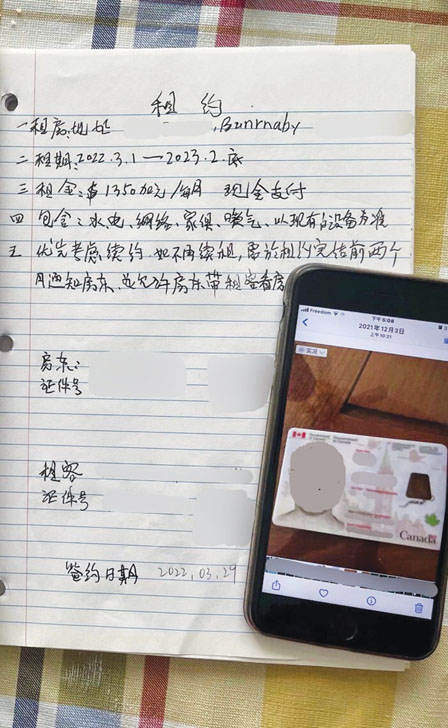 租 约
一租房地址 , Bunrnaby
二租期:2022.3.1 — 2023.2.底
三 租金:$1350加元/每月 现金支付
四 包含:水电、网络、家俱、暖气、以现有的设备为准
五 优先考虑续约,如不再续租,需於租约完结前两个
月通知房东,並允许房东带租客看房
房东:
证件号
租客
证件号
签约日期 2022,03,29
Freedom 下午5:08
2021年12月3日
上午10:31
实况
Government of Canada
Canada